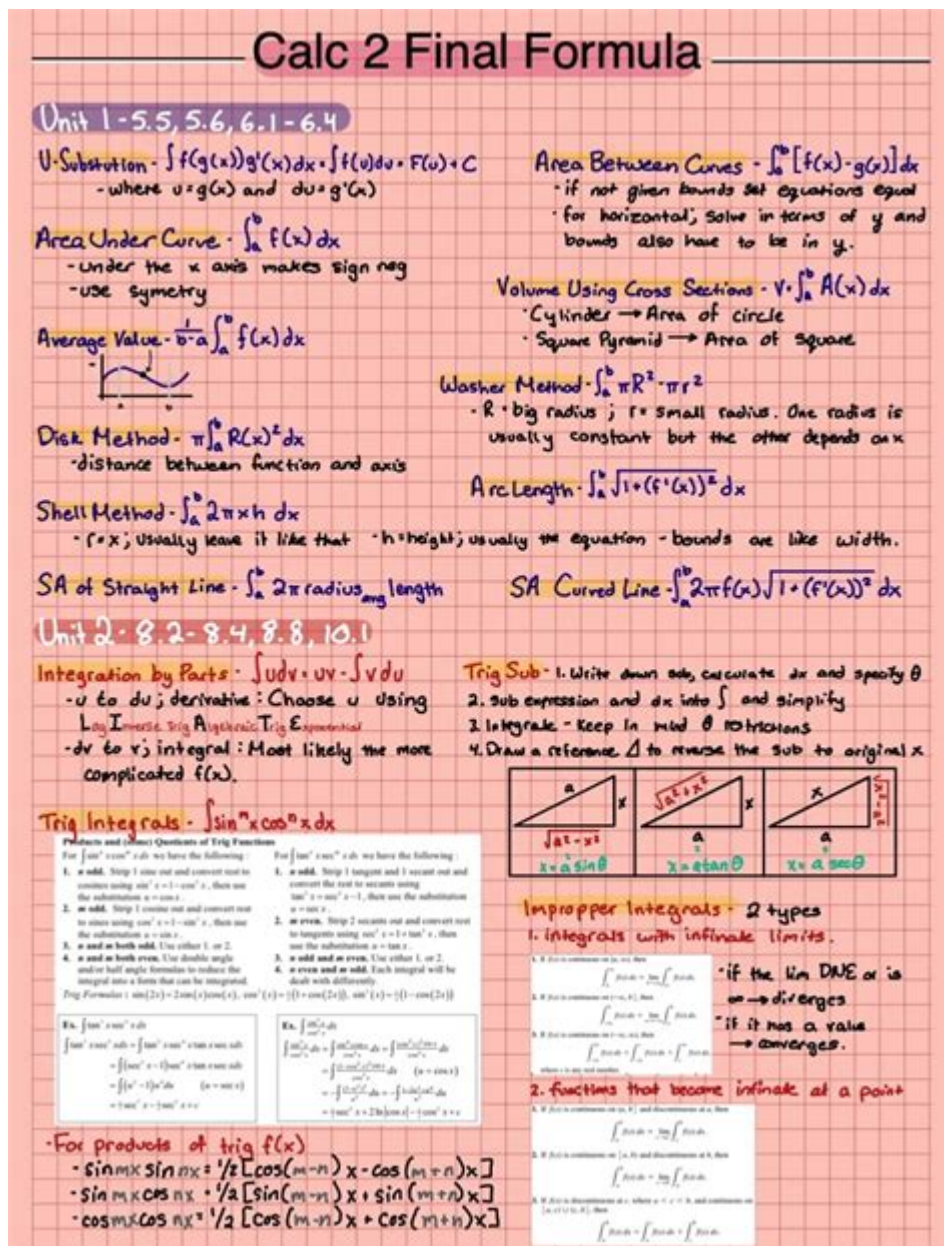 Calc 2 Final Formula
Unit 1-5.5, 5.6, 6.1-6.4
U-Substution - ∫f(g(x))g'(x)dx = ∫f(u)du = F(u)+C
- where u = g(x) and du = g'(x)
Area Under Curve - ∫_a^b f(x) dx
- under the x axis makes sign neg
- use symetry
Average Value - 1/(b-a) ∫_a^b f(x) dx
Disk Method - π∫_a^b R(x)² dx
- distance between function and axis
Shell Method - ∫_a^b 2πxh dx
- r = x; usually leave it like that - h = height; usually the equation - bounds are like width.
SA of Straight Line - ∫_a^b 2π radius_avg length
Area Between Curves - ∫_a^b [f(x)-g(x)]dx
- if not given bounds set equations equal
- for horizontal; solve in terms of y and
bounds also have to be in y.
Volume Using Cross Sections - V = ∫_a^b A(x) dx
· Cylinder → Area of circle
· Square Pyramid → Area of square
Washer Method - ∫_a^b πR² - πr²
- R = big radius ; r = small radius. One radius is
usually constant but the other depends on x
Arc Length - ∫_a^b √(1+(f'(x))²) dx
SA Curved Line - ∫_a^b 2πf(x)√(1+(f'(x))²) dx
Unit 2 - 8.2-8.4, 8.8, 10.1
Integration by Parts - ∫udv = uv - ∫vdu
- u to du; derivative: Choose u using
Log Inverse Trig Algebraic Trig Exponential
- dv to v; integral: Most likely the more
complicated f(x).
Trig Integrals - ∫sinⁿx cosⁿx dx
Products and (some) Quotients of Trig Functions
we have the following :
1. n odd. Strip 1 sine out and convert rest to
cosines using sin² x = 1 - cos² x , then use
the substitution u = cos x .
2. m odd. Strip 1 cosine out and convert rest
to sines using cos² x = 1 - sin² x , then use
the substitution u = sin x .
3. n and m both odd. Use either 1. or 2.
4. n and m both even. Use double angle
and/or half angle formulas to reduce the
integral into a form that can be integrated.
we have the following :
1. n odd. Strip 1 tangent and 1 secant out and
convert the rest to secants using
tan² x = sec² x - 1 , then use the substitution
u = sec x .
2. m even. Strip 2 secants out and convert rest
to tangents using sec² x = 1 + tan² x , then
use the substitution u = tan x .
3. n odd and m even. Use either 1. or 2.
4. n even and m odd. Each integral will be
dealt with differently.
Trig Formulas : sin(2x) = 2sin(x)cos(x), cos²(x) = ½(1+cos(2x)), sin²(x) = ½(1-cos(2x))
Ex.
(u = sec x)
Ex.
(u = cos x)
- For products of trig f(x)
- sin mx sin nx = 1/2 [cos(m-n)x - cos(m+n)x]
- sin mx cos nx = 1/2 [sin(m-n)x + sin(m+n)x]
- cosmx cos nx = 1/2 [cos(m-n)x + cos(m+n)x]
Trig Sub - 1. Write down sub, calculate dx and specify θ
2. sub expression and dx into ∫ and simplify
3. Integrate - Keep in mind θ restrictions
4. Draw a reference △ to reverse the sub to original x
a x √(a²-x²) x = a sinθ
√(a²+x²) x a x = a tanθ
x √(x²-a²) a x = a secθ
Impropper Integrals - 2 types
1. integrals with infinate limits.
- if the lim DNE or is
∞ → diverges
- if it has a value
→ converges.
2. functions that become infinate at a point